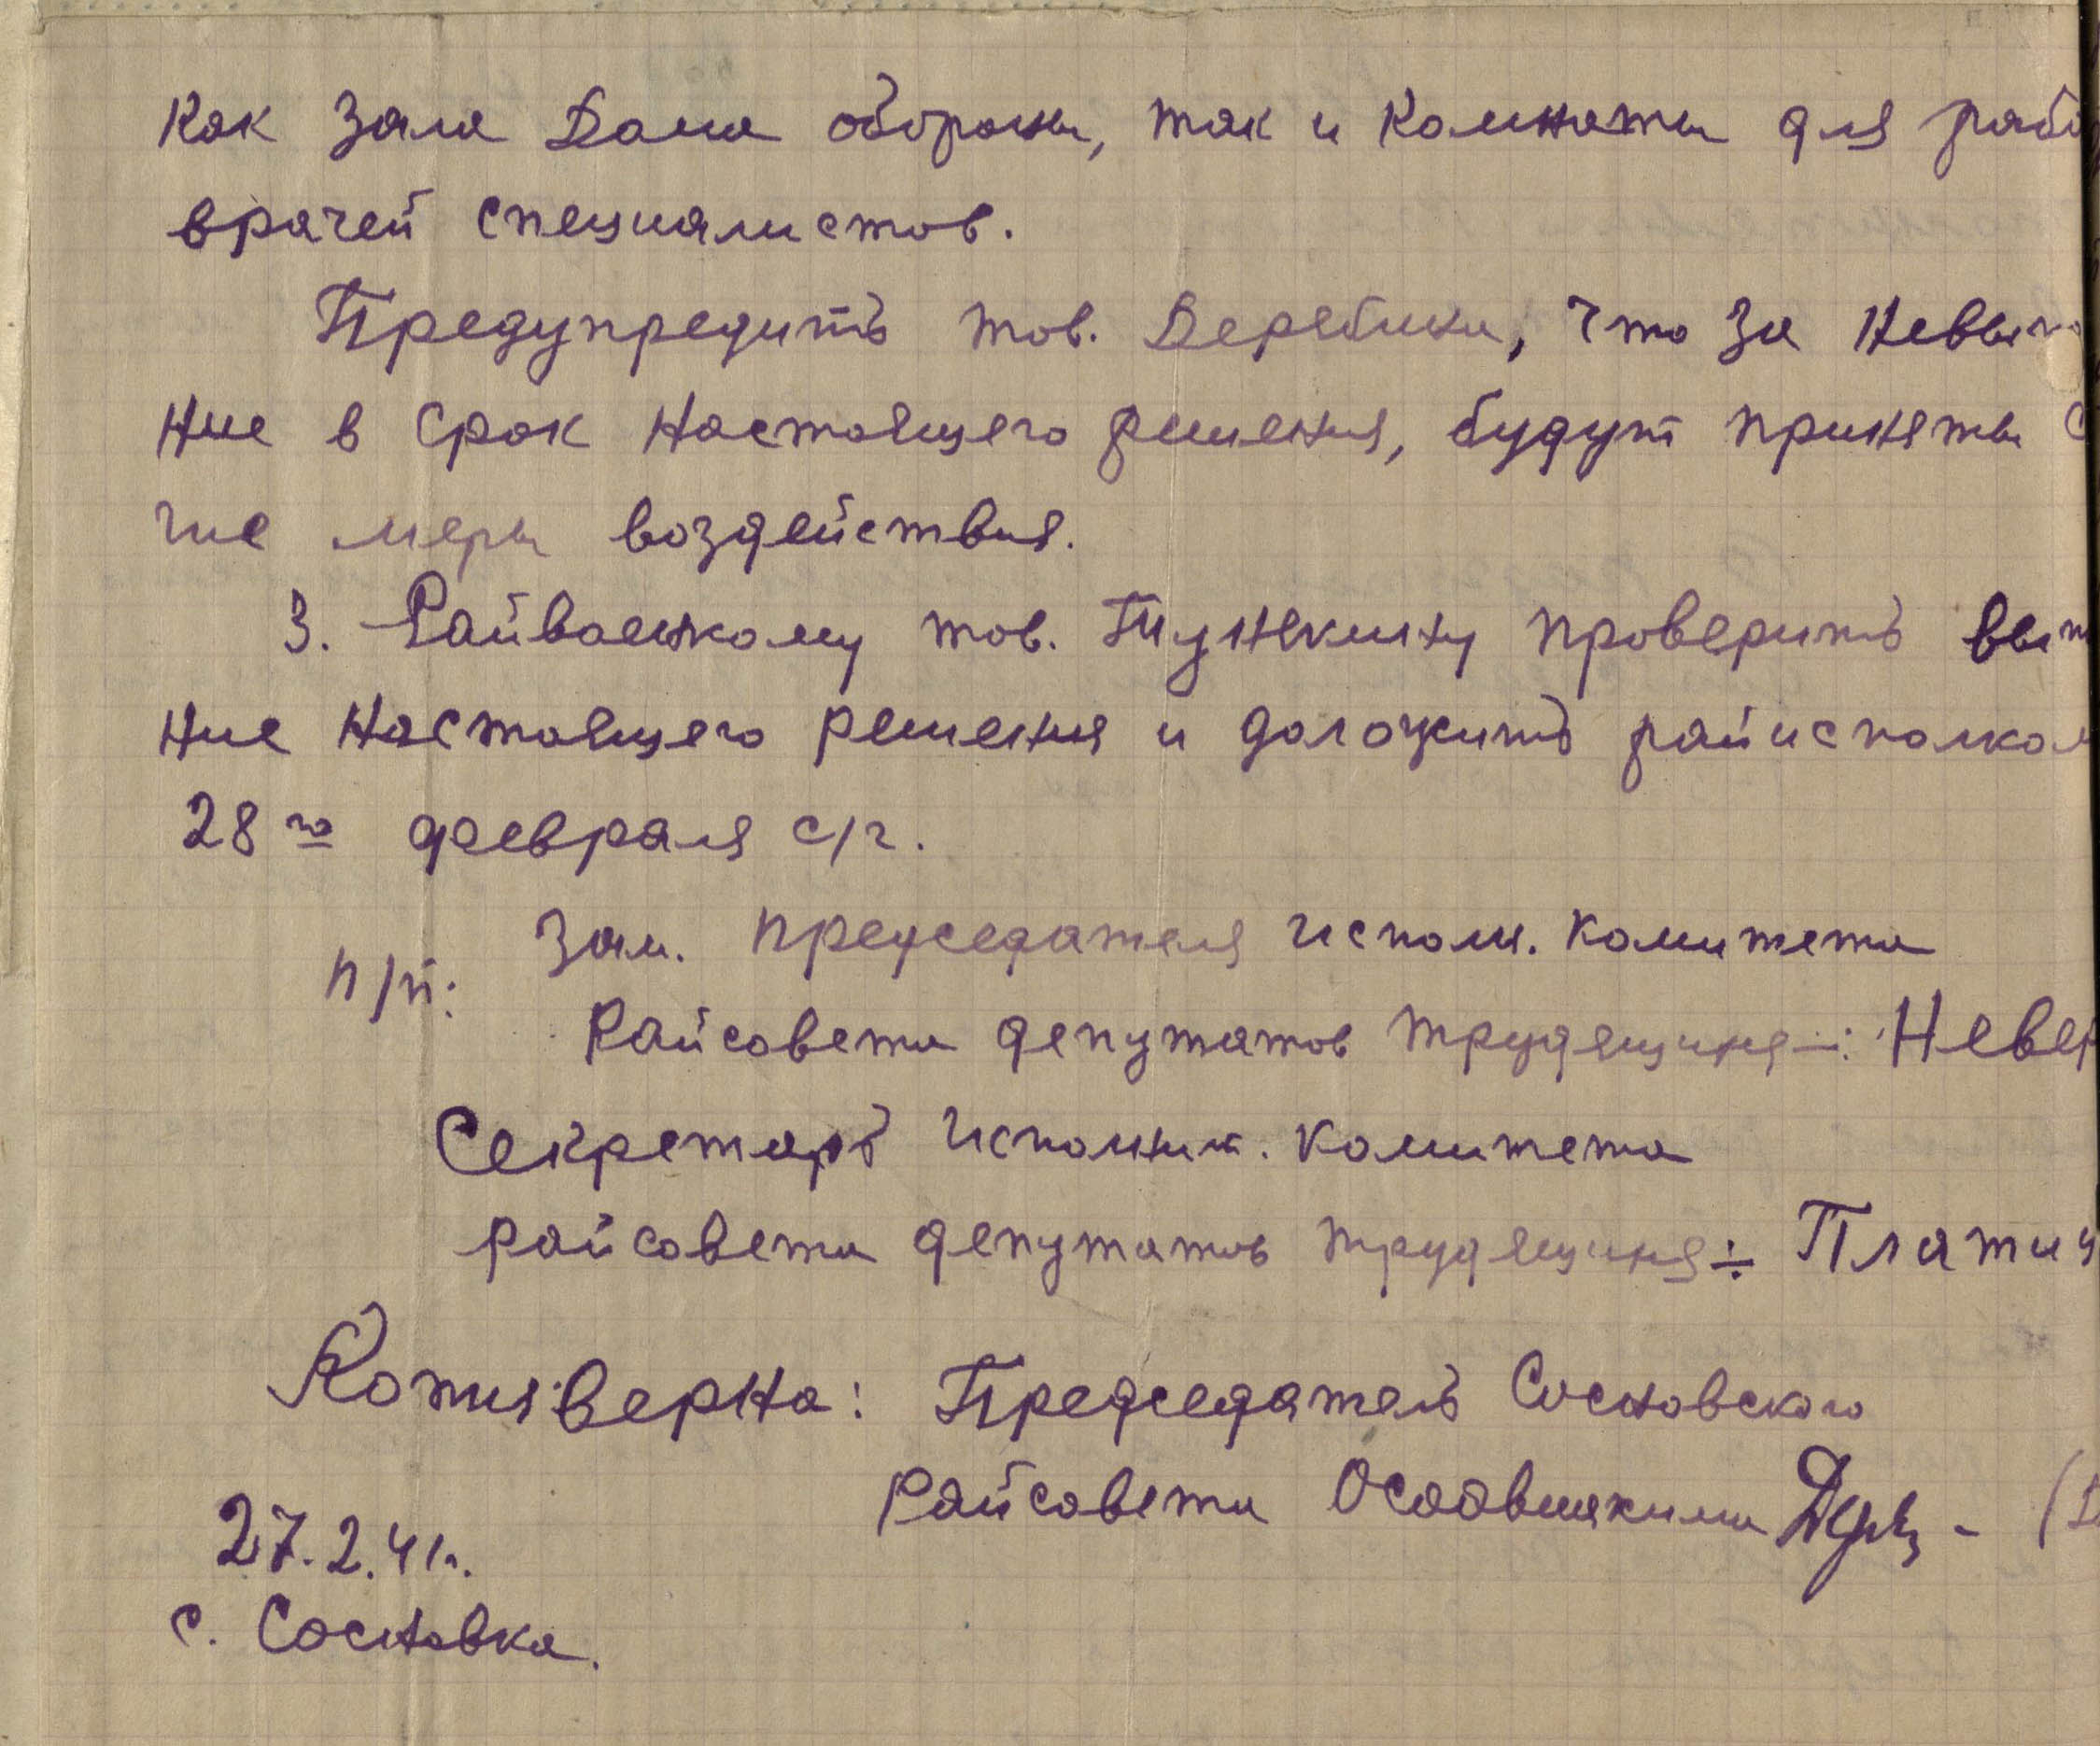 Как зала Дома обороны, так и комнаты для рабо
врачей специалистов.
Предупредить тов. Дерябина, что за невып
ние в срок настоящего решения, будут приняты с
гие меры воздействия.
3. Райвоенкому тов. Пужекину проверить вып
ние настоящего решения и доложить райисполком
28го февраля с/г.
п/п: Зам. председателя исполн. комитета
Райсовета депутатов трудящихся —: Невер
Секретарь исполнит. комитета
райсовета депутатов трудящихся ÷ Платиц
Копия верна: Председатель Сосновского
Райсовета Осоавиахима — (Д
27.2.41г.
с. Сосновка.